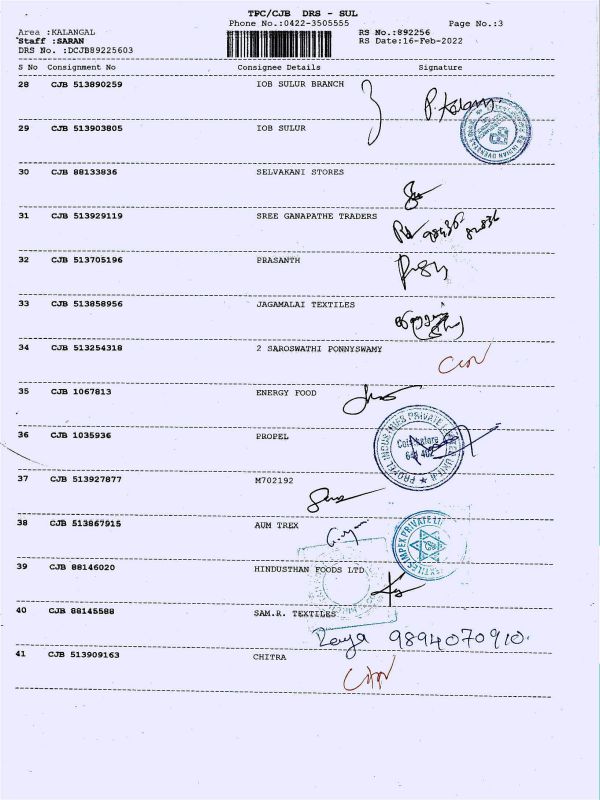 TPC/CJB DRS - SUL
Phone No.:0422-3505555 Page No.:3
Area :KALANGAL RS No.:892256
Staff :SARAN RS Date:16-Feb-2022
DRS No. :DCJB89225603
S No Consignment No Consignee Details Signature
28 CJB 513890259 IOB SULUR BRANCH
29 CJB 513903805 IOB SULUR
30 CJB 88133836 SELVAKANI STORES
31 CJB 513929119 SREE GANAPATHE TRADERS
32 CJB 513705196 PRASANTH
33 CJB 513858956 JAGAMALAI TEXTILES
34 CJB 513254318 2 SAROSWATHI PONNYSWAMY
35 CJB 1067813 ENERGY FOOD
36 CJB 1035936 PROPEL
PROPEL INDUSTRIES PRIVATE
37 CJB 513927877 M702192
38 CJB 513867915 AUM TREX
39 CJB 88146020 HINDUSTHAN FOODS LTD
40 CJB 88145588 SAM.R. TEXTILES
9894070910
41 CJB 513909163 CHITRA